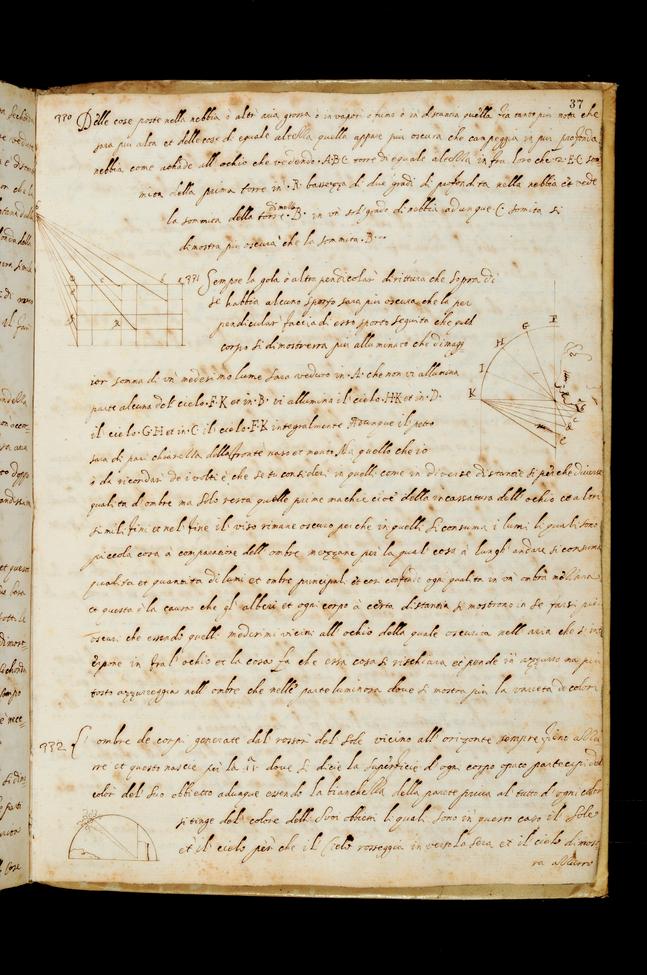 37
330 Delle cose poste nella nebbia ò altri aria grossa ò in vapori o fumo ò in distantia quella fia tanto piu nota che
sara piu alta et delle cose di equale altezza quella appare piu oscura che campeggia in piu profonda
nebbia come achade all' ochio che vedendo .A.B.C. torre di equale altezza in fra loro che
mita della prima torre in .R. bassezza di due gradi di profondita nella nebbia et vede
la sommita della torre di mezzo .B. in un sol grado di nebbia adunque .C. somita si
dimostra piu oscura che la sommita .B.
331 Sempre la gola ò altra perdicolar dirittura che sopra di
se habbia alcuno sporto sara piu oscura che la per
pendicular faccia di esso sporto seguita che quel
corpo si dimostrerra piu alluminato che di magi
ior somma di un medesimo lume sara veduto in .A. che non vi allumina
parte alcuna del cielo .F.K et in .B. vi allumina il cielo .HK et in .D.
il cielo .G.H et in .C. il cielo .F.K integralmente Adunque il petto
sara di pari chiarezza della fronte naso et mento Ma quello che io
ò da ricordar de i volti è che se tu consideri in quelli come in diverse distantie si perche diverse
qualita d'ombre ma solo resta quelle prime machie cioè della incassatura dell' ochio et altri
simili fini et nel fine il viso rimane oscuro perche in quelli si consuma i lumi li quali sono
piccola cosa à comparatione dell' ombre mezzane per la qual cosa à lungh' andare si consuma
qualita et quantita di lumi et ombre principali et cosi confonde ogni qualita in un' ombra mezzana
et questa è la causa che gl' alberi et ogni corpo à certa distantia si mostrono in se farsi piu
oscuri che essendo quelli medesimi vicini all' ochio della quale oscurita nell' aria che si int
erpone in fra l'ochio et la cosa fa che essa cosa si rischiara et pende in azzurro ma piu
tosto azzurreggia nell' ombre che nelle parte luminose dove si mostra piu la varieta de colori
332 L' ombre de corpi generate dal rossori del Sole vicino all' orizonte sempre fieno azzu
rre et questo nascie per la 11ª dove si dicie la superficie d' ogni corpo opaco partecipa del
color del suo obbietto adunque essendo la bianchezza della parete priva al' tutto d' ogni colore
si tinge del colore delli suoi obietti li quali sono in questo caso il sole
et il cielo per che il sole rosseggia in verso la sera et il cielo dimost
ra azzurro
K
I
H
G
F